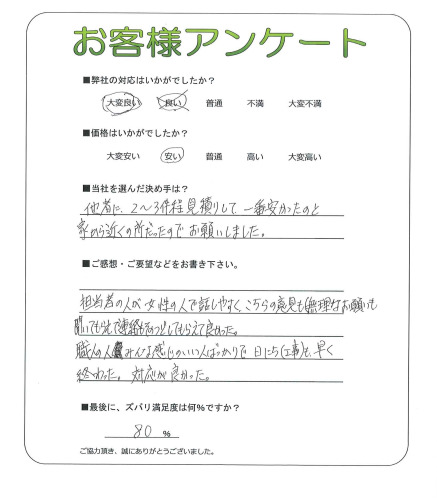 お客様アンケート
■弊社の対応はいかがでしたか?
大変良い 良い 普通 不満 大変不満
■価格はいかがでしたか?
大変安い 安い 普通 高い 大変高い
■当社を選んだ決め手は?
他者に、2〜3件程見積りして、一番安かったのと
家から近くの所だったのでお願いしました。
■ご感想・ご要望などをお書き下さい。
担当者の人が女性の人で話しやすく、こちらの意見も無理なお願いも
聞いてもらえて連絡も してもらえて良かった。
職人の人 みんな感じのいい人ばっかりで 日にち(工事)も、早く
終わった。 対応が良かった。
■最後に、ズバリ満足度は何%ですか?
80 %
ご協力頂き、誠にありがとうございました。